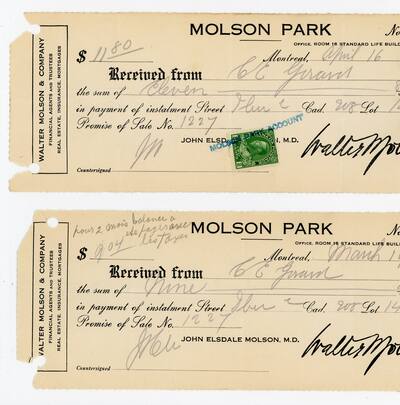 MOLSON PARK
No
OFFICE, ROOM 18 STANDARD LIFE BUIL
WALTER MOLSON & COMPANY
FINANCIAL AGENTS AND TRUSTEES
REAL ESTATE, INSURANCE, MORTGAGES
$ 11.80
Montreal, April 16
Received from C E Girard
the sum of eleven
in payment of instalment Street Iber Cad. 208 Lot
Promise of Sale No. 1227
MOLSON PARK ACCOUNT
JOHN ELSDALE MOLSON, M.D.
Walter Mol
Countersigned
MOLSON PARK
No
OFFICE, ROOM 18 STANDARD LIFE BUIL
WALTER MOLSON & COMPANY
FINANCIAL AGENTS AND TRUSTEES
REAL ESTATE, INSURANCE, MORTGAGES
pour 2 mois balance
$ 9.04
Montreal, March 1
Received from C E Girard
the sum of Nine
in payment of instalment Street Iber Cad. 208 Lot 14
Promise of Sale No. 1227
JOHN ELSDALE MOLSON, M.D.
Walter Mol
Countersigned